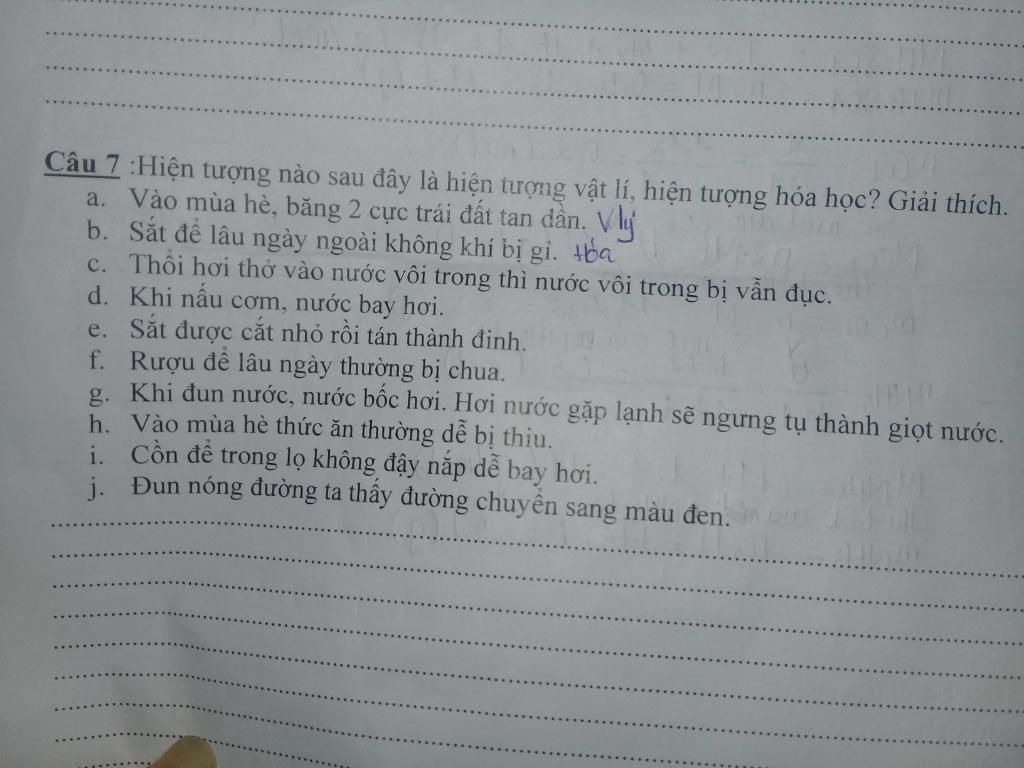 Câu 7 :Hiện tượng nào sau đây là hiện tượng vật lí, hiện tượng hóa học? Giải thích.
a. Vào mùa hè, băng 2 cực trái đất tan dần. Vlý
b. Sắt để lâu ngày ngoài không khí bị gỉ. Hóa
c. Thổi hơi thở vào nước vôi trong thì nước vôi trong bị vẩn đục.
d. Khi nấu cơm, nước bay hơi.
e. Sắt được cắt nhỏ rồi tán thành đinh.
f. Rượu để lâu ngày thường bị chua.
g. Khi đun nước, nước bốc hơi. Hơi nước gặp lạnh sẽ ngưng tụ thành giọt nước.
h. Vào mùa hè thức ăn thường dễ bị thiu.
i. Cồn để trong lọ không đậy nắp dễ bay hơi.
j. Đun nóng đường ta thấy đường chuyển sang màu đen.